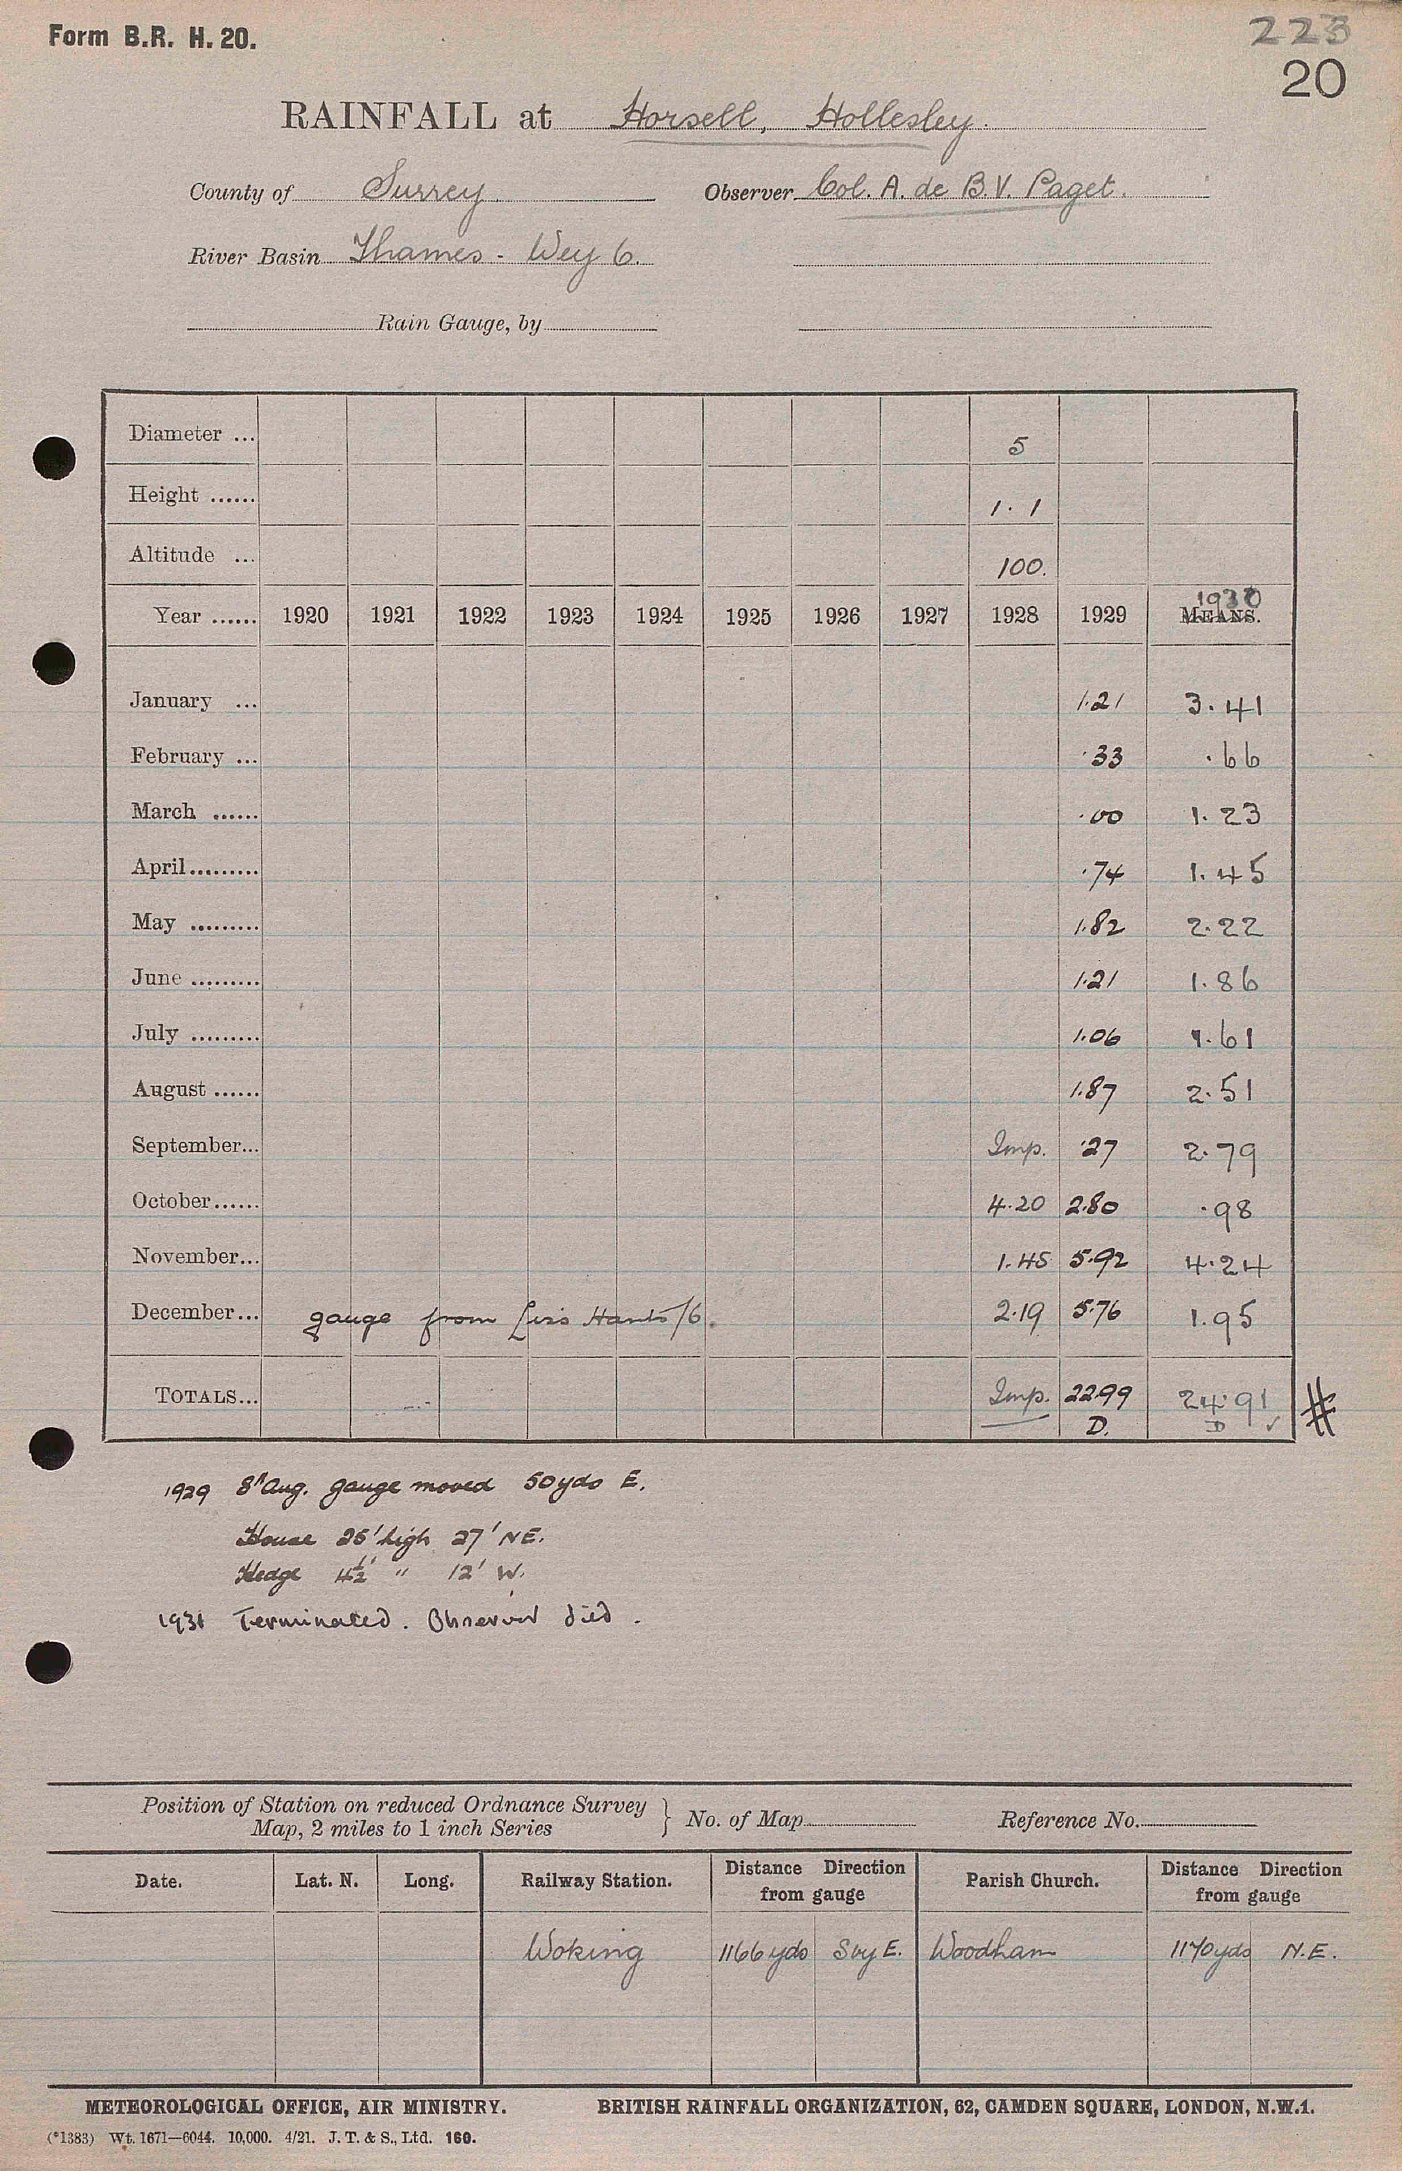 Form B.R. H. 20.
223
20
RAINFALL at Horsell, Hollesley.
County of Surrey. Observer Col. A. de B.V. Paget.
River Basin Thames - Wey 6.
Rain Gauge, by
Diameter ... 5
Height ...... 1.1
Altitude ... 100.
Year ...... 1920 1921 1922 1923 1924 1925 1926 1927 1928 1929 MEANS. 1930
January ... 1.21 3.41
February ... .33 .66
March ...... .00 1.23
April ......... .74 1.45
May ......... 1.82 2.22
June ......... 1.21 1.86
July ......... 1.06 1.61
August ...... 1.87 2.51
September... Imp. .27 2.79
October...... 4.20 2.80 .98
November... 1.45 5.92 4.24
December... gauge from Liss Hants /6. 2.19 5.76 1.95
TOTALS... Imp. 22.99 24.91 #
D. D ✓
1929 8th Aug. gauge moved 50 yds E.
House 25' high 27' NE.
Hedge 4½' " 12' W.
1931 Terminated. Observer died.
Position of Station on reduced Ordnance Survey
Map, 2 miles to 1 inch Series } No. of Map Reference No.
Date. Lat. N. Long. Railway Station. Distance Direction from gauge Parish Church. Distance Direction from gauge
Woking 1166 yds S by E. Woodham 1170 yds N.E.
METEOROLOGICAL OFFICE, AIR MINISTRY. BRITISH RAINFALL ORGANIZATION, 62, CAMDEN SQUARE, LONDON, N.W.1.
(*1383) Wt. 1671—6044. 10,000. 4/21. J. T. & S., Ltd. 160.